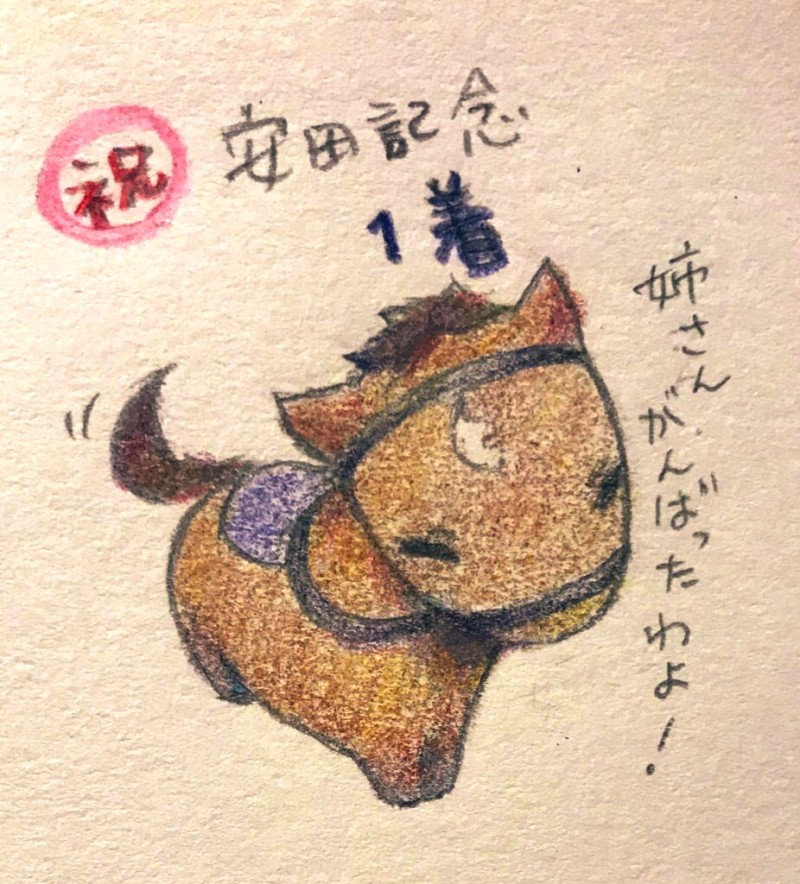 祝
安田記念
1着
姉さんがんばったわよ！